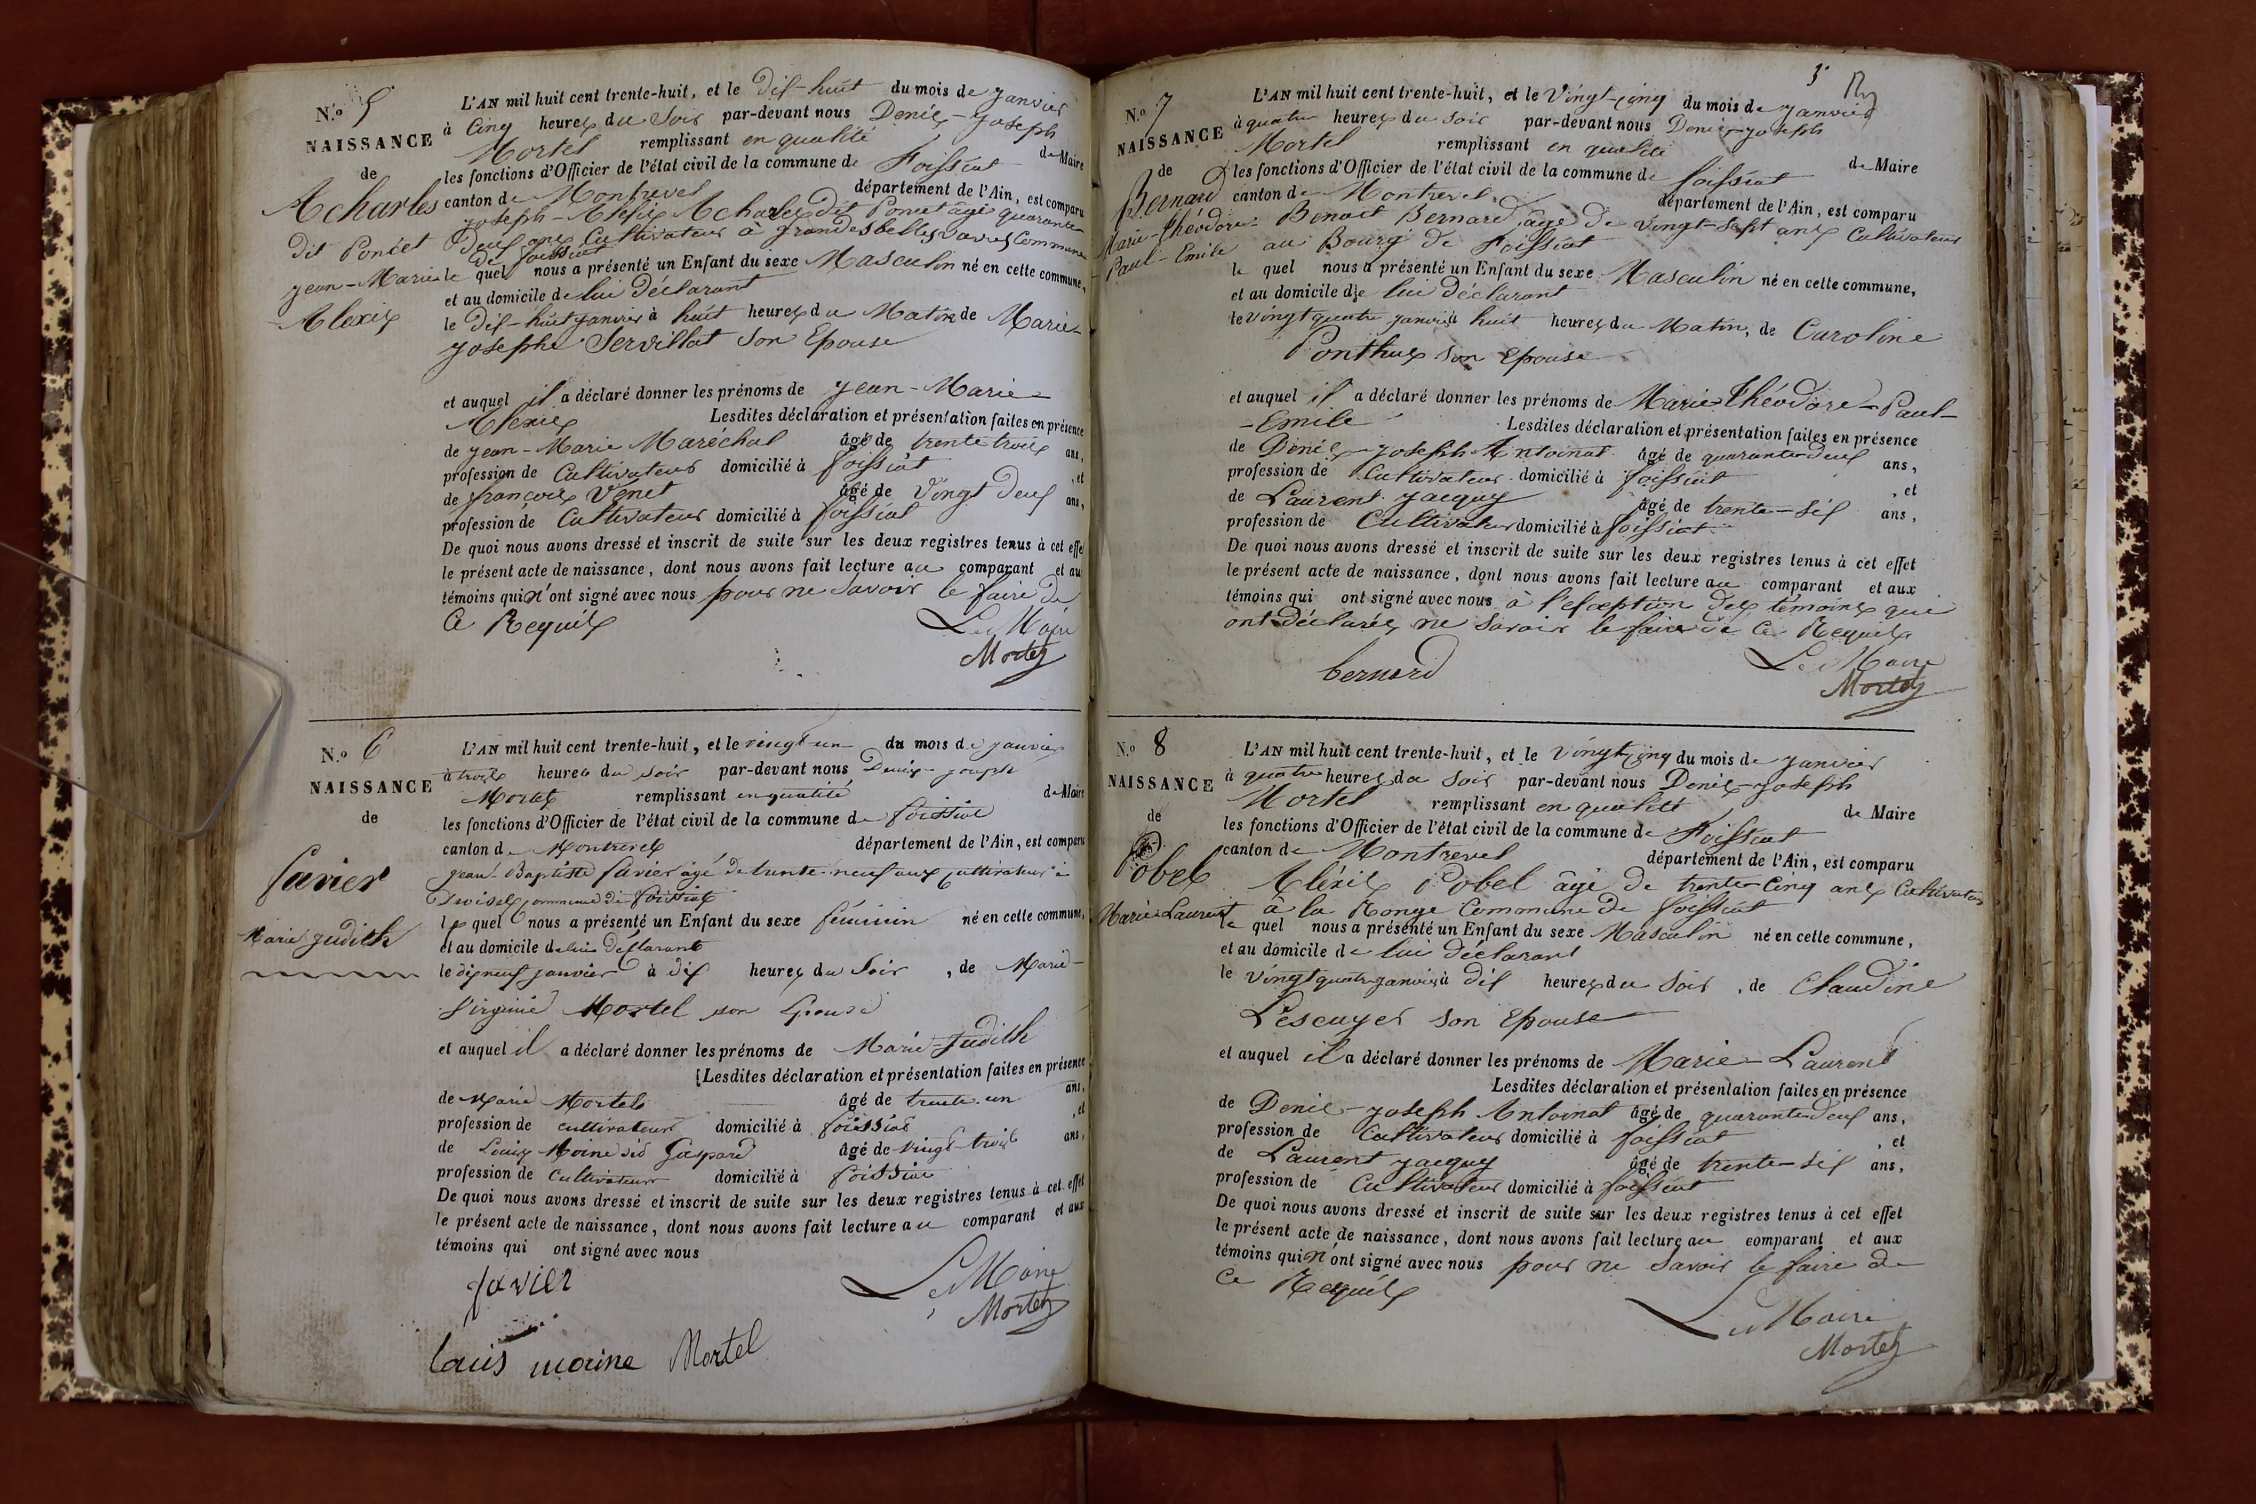 N.o 5
NAISSANCE
de
Acharles
dit Poncet
Jean-Marie
Alexis
L'AN mil huit cent trente-huit, et le dix-huit du mois de janvier
à cinq heures du soir par-devant nous Denis-Joseph
Mortel remplissant en qualité de Maire
les fonctions d'Officier de l'état civil de la commune de Foissiat
canton de Montrevel département de l'Ain, est comparu
Joseph-Alexis Acharles dit Poncet âgé quarante
deux ans Cultivateur à grandes belles vavres Commune
de foissiat
le quel nous a présenté un Enfant du sexe Masculin né en cette commune,
et au domicile de lui Déclarant
le dix-huit janvier à huit heures du Matin de Marie-
Josephe Servillat son Epouse
et auquel il a déclaré donner les prénoms de Jean-Marie-
Alexis Lesdites déclaration et présentation faites en présence
de Jean-Marie Maréchal âgé de trente trois ans,
profession de Cultivateur domicilié à foissiat , et
de françois Venet âgé de Vingt Deux ans,
profession de Cultivateur domicilié à foissiat
De quoi nous avons dressé et inscrit de suite sur les deux registres tenus à cet effet
le présent acte de naissance, dont nous avons fait lecture au comparant et au
témoins qui n'ont signé avec nous pour ne savoir le faire de
Ce Requis
Le Maire
Mortel
N.o 6
NAISSANCE
de
favier
Marie Judith
L'AN mil huit cent trente-huit, et le vingt un du mois de janvier
à trois heures du soir par-devant nous Denis-Joseph
Mortel remplissant en qualité de Maire
les fonctions d'Officier de l'état civil de la commune de foissiat
canton de Montrevel département de l'Ain, est comparu
Jean-Baptiste favier âgé de trente-neuf ans cultivateur à
commune de foissiat
le quel nous a présenté un Enfant du sexe féminin né en cette commune,
et au domicile de lui Déclarant
le dix neuf janvier à dix heures du Soir , de Marie-
Virginie Mortel son Epouse
et auquel il a déclaré donner les prénoms de Marie-Judith
Lesdites déclaration et présentation faites en présence
de Marie Mortel âgé de trente-un ans,
profession de cultivateur domicilié à foissiat , et
de Louis Moine dit Gaspard âgé de vingt-trois ans,
profession de cultivateur domicilié à foissiat
De quoi nous avons dressé et inscrit de suite sur les deux registres tenus à cet effet
le présent acte de naissance, dont nous avons fait lecture au comparant et aux
témoins qui ont signé avec nous
favier
Le Maire
Mortel
louis moine Mortel
3
N.o 7
NAISSANCE
de
Bernard
Marie-Théodore-
Paul-Emile
L'AN mil huit cent trente-huit, et le Vingt-cinq du mois de janvier
à quatre heures du soir par-devant nous Denis-Joseph
Mortel remplissant en qualité de Maire
les fonctions d'Officier de l'état civil de la commune de foissiat
canton de Montrevel département de l'Ain, est comparu
Benoit Bernard, âgé de vingt-sept ans Cultivateur
au Bourg de Foissiat
le quel nous a présenté un Enfant du sexe Masculin né en cette commune,
et au domicile de lui Déclarant
le vingt quatre janvier à huit heures du Matin, de Caroline
Ponthus son Epouse
et auquel il a déclaré donner les prénoms de Marie-Théodore-Paul-
-Emile Lesdites déclaration et présentation faites en présence
de Denis-Joseph Antoinat âgé de quarante deux ans,
profession de Cultivateur domicilié à foissiat , et
de Laurent Jacquy âgé de trente-six ans,
profession de Cultivateur domicilié à foissiat
De quoi nous avons dressé et inscrit de suite sur les deux registres tenus à cet effet
le présent acte de naissance, dont nous avons fait lecture au comparant et aux
témoins qui ont signé avec nous à l'exception des témoins qui
ont Déclarés ne savoir le faire de Ce Requis
bernard
Le Maire
Mortel
N.o 8
NAISSANCE
de
Pobel
Marie-Laurent
L'AN mil huit cent trente-huit, et le vingt cinq du mois de janvier
à quatre heures du soir par-devant nous Denis-Joseph
Mortel remplissant en qualité de Maire
les fonctions d'Officier de l'état civil de la commune de Foissiat
canton de Montrevel département de l'Ain, est comparu
Alexis Pobel âgé de trente-cinq ans Cultivateur
à la Ronge Commune de foissiat
le quel nous a présenté un Enfant du sexe Masculin né en cette commune,
et au domicile de lui Déclarant
le vingt quatre janvier à dix heures du Soir , de Claudine
Lescuyer son Epouse
et auquel il a déclaré donner les prénoms de Marie-Laurent
Lesdites déclaration et présentation faites en présence
de Denis-Joseph Antoinat âgé de quarante deux ans,
profession de Cultivateur domicilié à foissiat , et
de Laurent Jacquy âgé de trente-six ans,
profession de Cultivateur domicilié à foissiat
De quoi nous avons dressé et inscrit de suite sur les deux registres tenus à cet effet
le présent acte de naissance, dont nous avons fait lecture au comparant et aux
témoins qui n'ont signé avec nous pour ne savoir le faire de
Ce Requis
Le Maire
Mortel